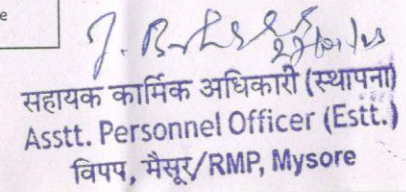 e
सहायक कार्मिक अधिकारी (स्थापना)
Asstt. Personnel Officer (Estt.)
विपप, मैसूर/RMP, Mysore